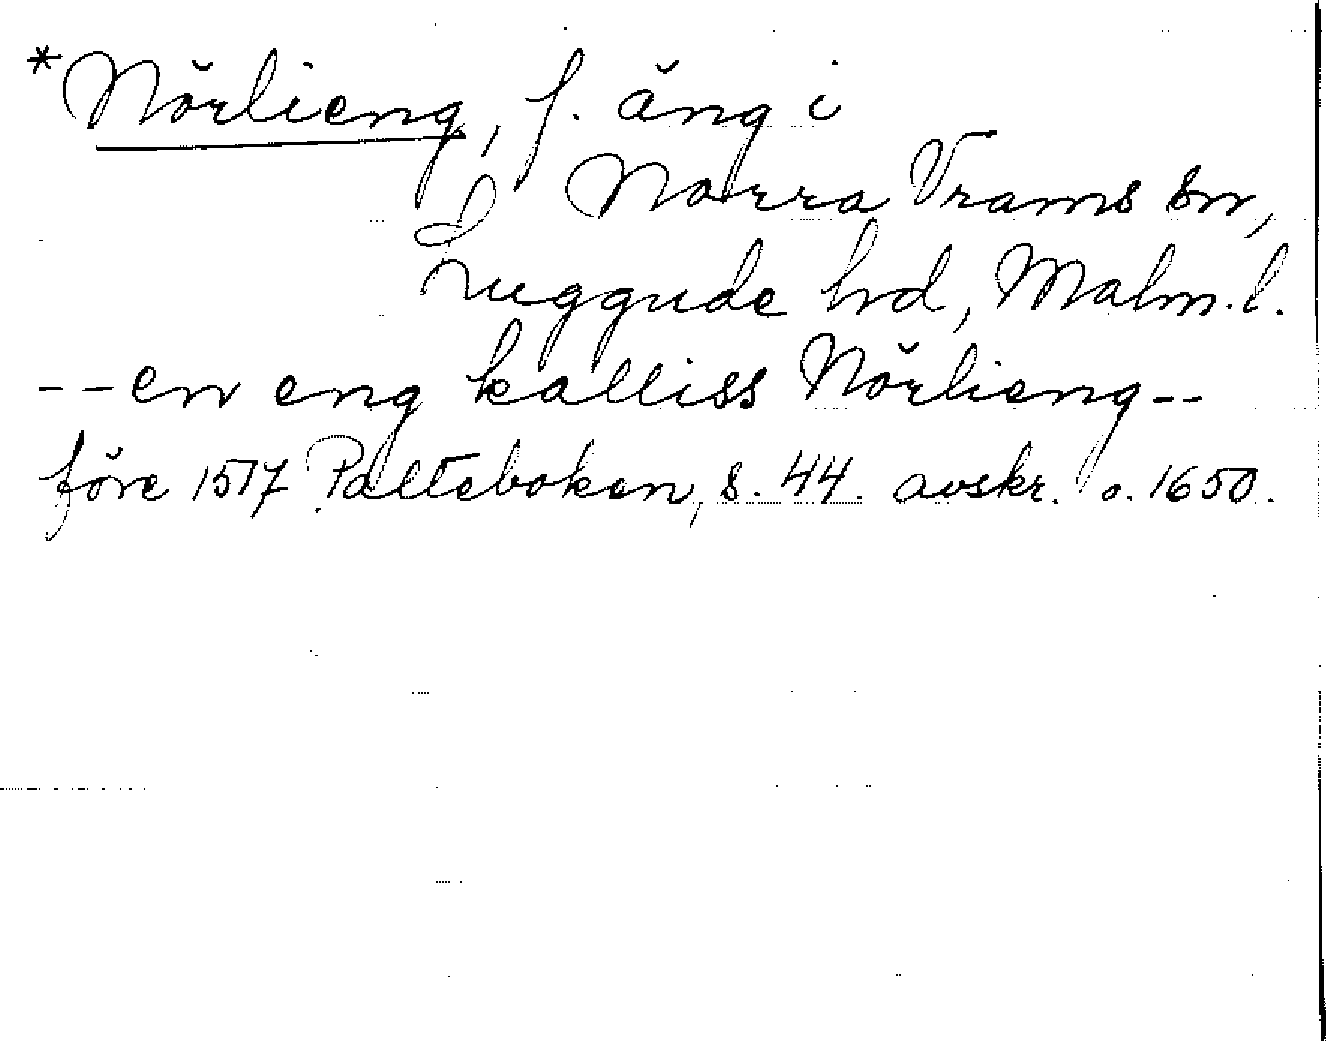 *Nörlieng, f. äng i
Norra Vrams sn,
Luggude hd, Malm. l.
-- en eng kalliss Nörlieng --
före 1517 Palteboken, s. 44. avskr. o. 1650.